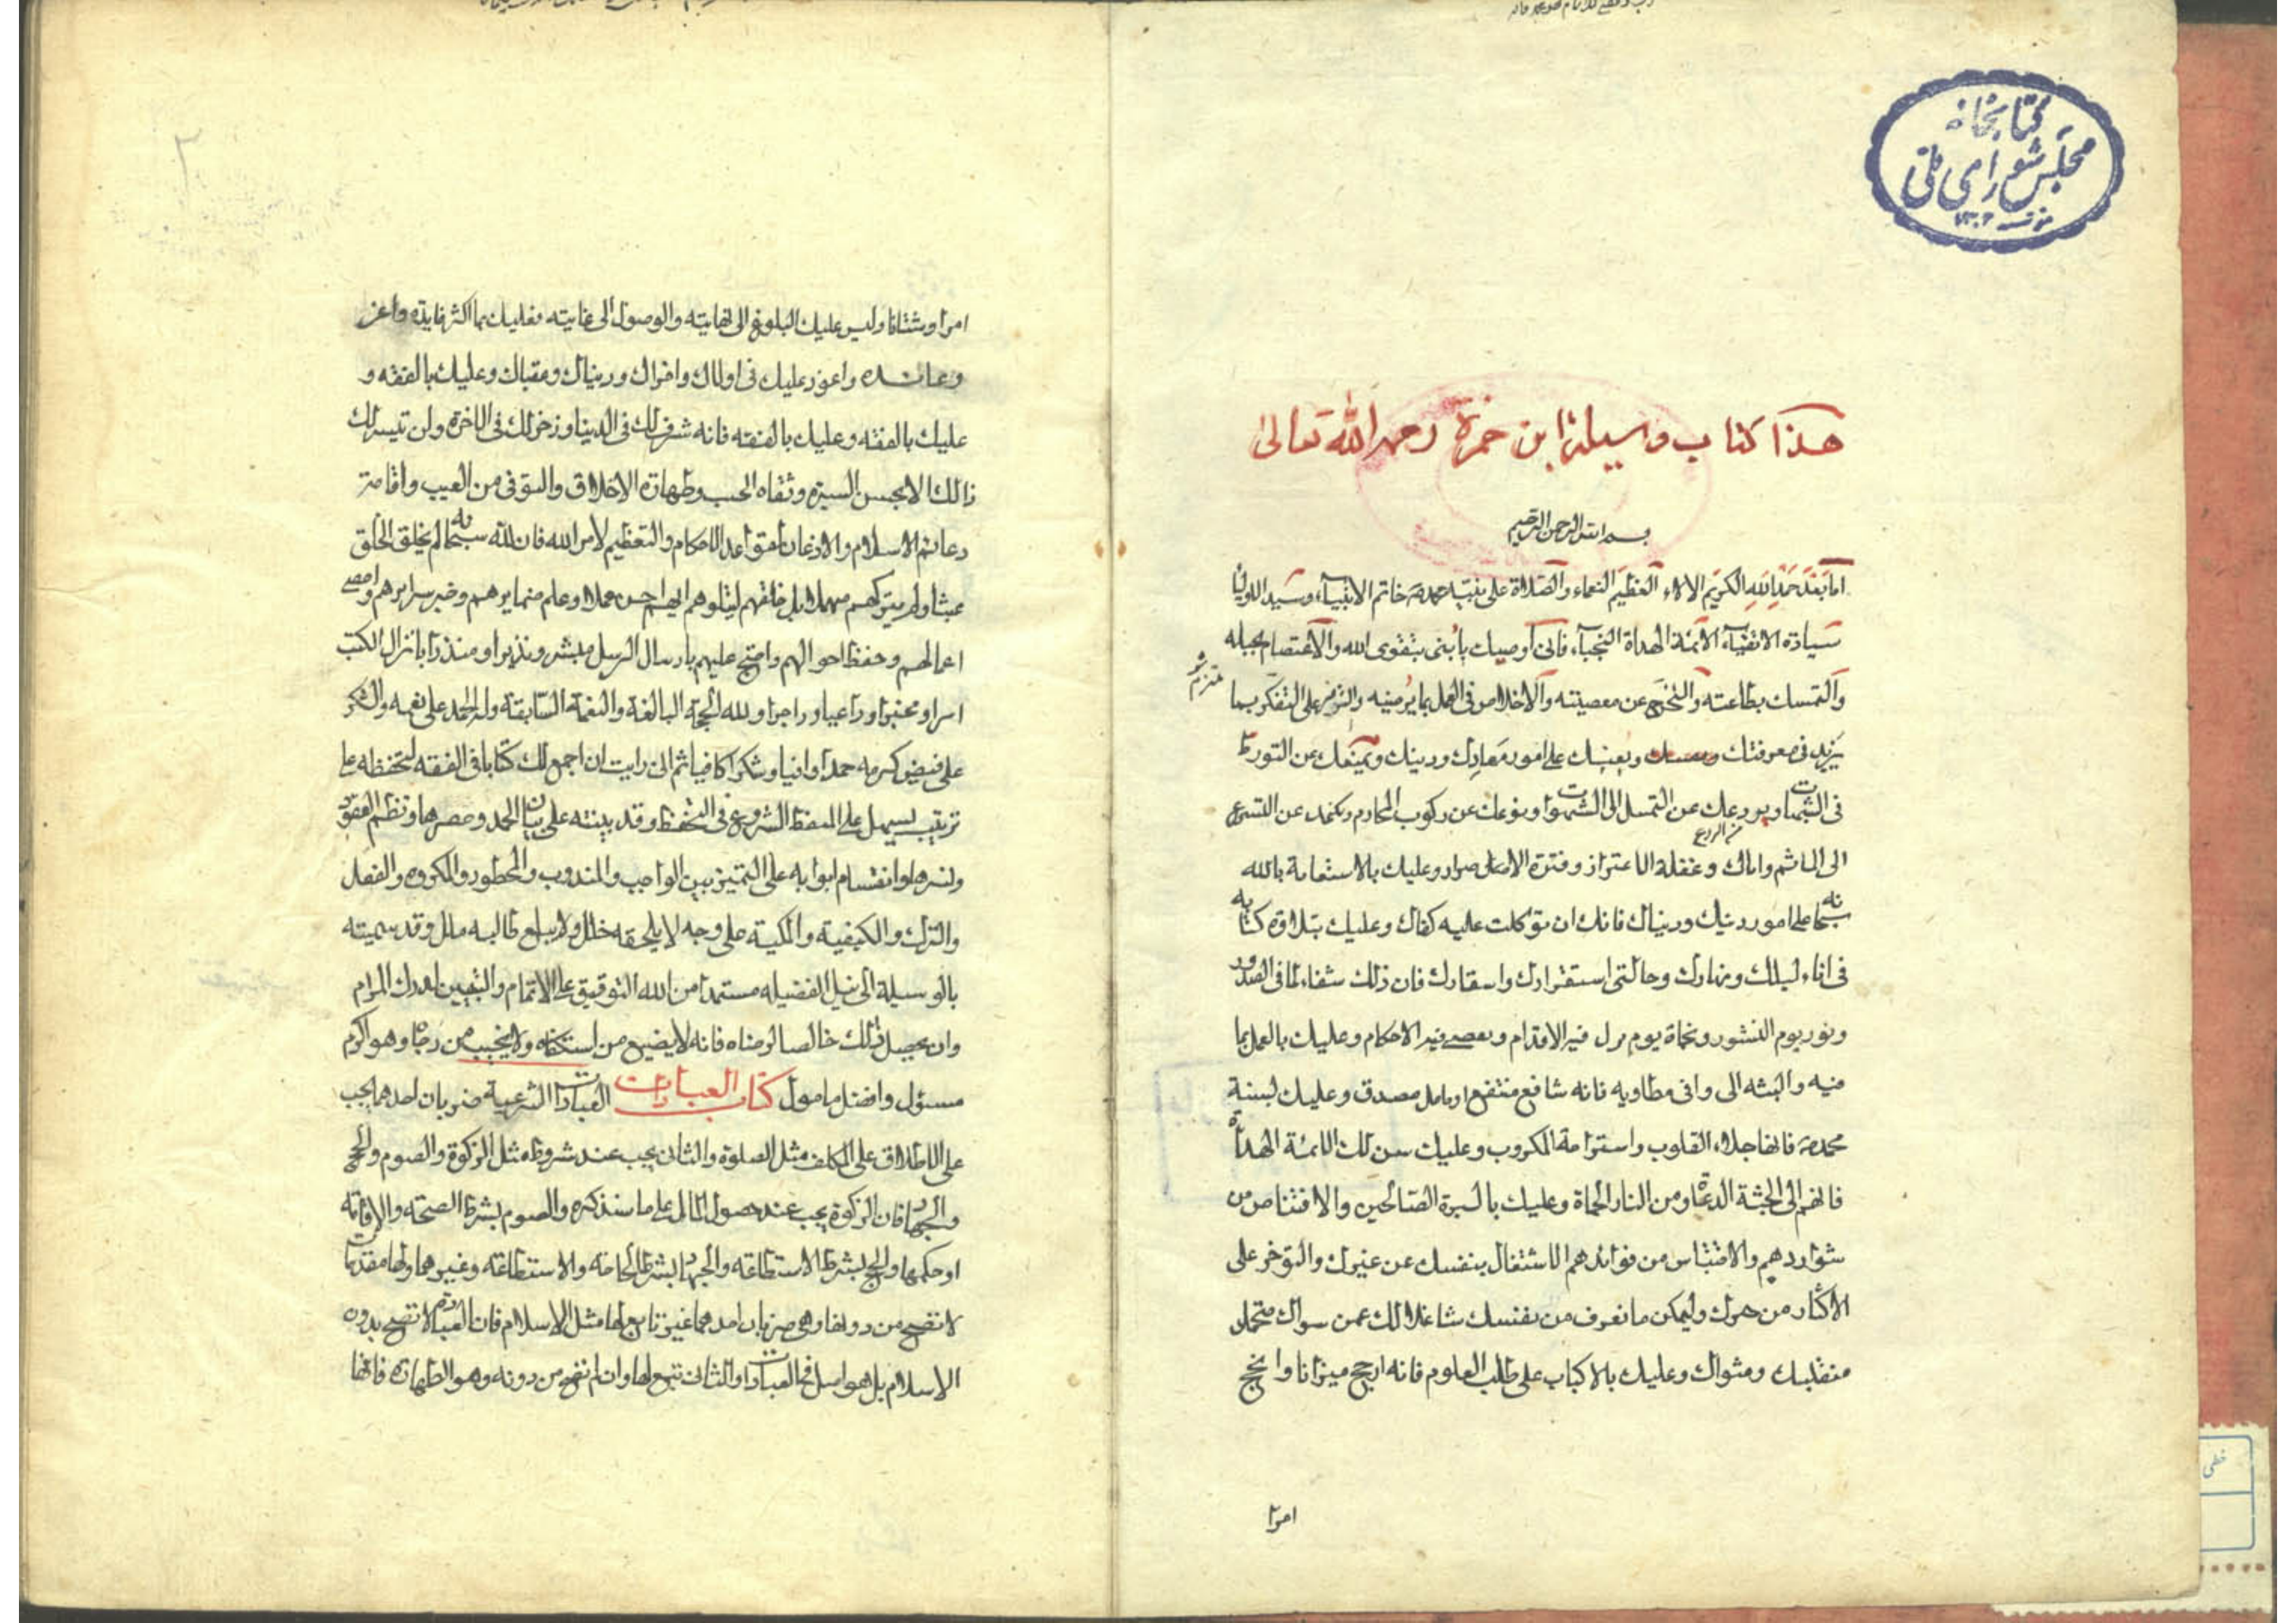 كتابخانه
مجلس شورای ملی
هذا كتاب وسيلة ابن حمزة رحمه الله تعالى
بسم الله الرحمن الرحيم
اما بعد حمد الله الكريم الالاء العظيم النعماء والصلاة على نبيه محمد خاتم الانبياء وسيد الاوليا
سادة الاتقياء الائمة الهداة النجباء فانى اوصيك يا بنى بتقوى الله والاعتصام بحبله
والتمسك بطاعته والتحرج عن معصيته والاخلاص فى العمل بما يرضيه والتوفر على التفكر بما
يزيد فى معرفتك ويعينك على امور معادك ودينك ويمنعك عن التورط
فى الشبهات ويردعك عن التمسل الى الشهوات ويوعك عن ركوب المحارم ويكفك عن التسرع
الى المآثم واياك وغفلة الاغترار وفترة الاصرار وعليك بالاستعانة بالله
سبحانه على امور دينك ودنياك فانك ان توكلت عليه كفاك وعليك بتلاوة كتابه
فى اناء ليلك ونهارك وحالتى استقرارك واسفارك فان ذلك شفاء لما فى الصدور
ونور يوم النشور ونجاة يوم يزل فيه الاقدام و فيه الاحكام وعليك بالعمل بما
فيه والبثه الى وافى مطاويه فانه شافع منتفع او ماحل مصدق وعليك بسنة
محمد فانها جلاء القلوب واستراحة المكروب وعليك بسنن تلك الائمة الهداة
فانهم الى الجنة الدعاة ومن النار الحماة وعليك بالسيرة الصالحين والاقتناص من
شواردهم والاقتباس من فوائدهم الاشتغال بنفسك عن غيرك والتوخر على
الاكثار من همك وليكن ما تعرف من نفسك شاغلا لك عمن سواك متحملا
منقلبك ومثواك وعليك بالاكباب على طلب العلوم فانه ارجح ميزانا وانجح
امرا
٢
امرا وشانا وليس عليك البلوغ الى نهايته والوصول الى غايته فعليك بما اكثر فايدة واعز
وعائده واعود عليك فى اولاك واخراك ودنياك وعقباك وعليك بالفقه و
عليك بالفقه وعليك بالفقه فانه شرف لك فى الدينا وذخر لك فى الاخرة ولن تيسر لك
ذالك الا بحسن السيرة ونقاه الجيب وطهارة الاخلاق والتوقى من العيب واقامة
دعائم الاسلام والاذعان لقواعد الاحكام والتعظيم لامر الله فان لله سبحانه لم يخلق الخلق
عبثا ولم يتركهم مهملا بل خلقهم ليبلوهم ايهم احسن عملا وعلم ضمايرهم وخبر سرايرهم واحصى
اعمالهم وحفظ احوالهم واحتج عليهم بارسال الرسل مبشرا ونذيرا ومنذرا بانزال الكتب
امرا ومخبرا وداعيا وزاجرا ولله الحجة البالغة والنعمة السابقة وله الحمد على نعمه والشكر
على فيض كرمه حمدا وافيا وشكرا كافيا ثم انى رايت ان اجمع لك كتابا فى الفقه لتحفظه على
ترتيب يسهل على الحفظ الشروع فى التحفظ وقد بينته على بيان الحمد وحصرها ونظم العقود
ونشرها وانقسام ابوابه على التمييز بين الواجب والمندوب والمحظور والمكروه والفعل
والترك والكيفية والكمية على وجه لا يلحقه خلل ولا يبلغ طالبه ملل وقد سميته
بالوسيلة الى نيل الفضيله مستمدا من الله التوفيق على الاتمام والتبيين لدرك المرام
وان يجعل ذلك خالصا لرضاه فانه لا يضيع من استكفاه ولا يخيب من رجاه وهو اكرم
مسئول وافضل مامول كتاب العبادات العبادات الشرعية ضربان احدهما يجب
على الاطلاق على المكلف مثل الصلوة والثانى يجب عند شروط مثل الزكوة والصوم والحج
والجهاد فان الزكوة يجب عند حصول المال على ما سنذكره والصوم بشرط الصحة والاقامة
او حكمها والحج بشرط الاستطاعة والجهاد بشرط الحاجة والاستطاعة وغيرهما ولها مقدمات
لا تصح من دونها وهى ضربان احدهما غير تابع لها مثل الاسلام فان العبادة لا تصح بدون
الاسلام بل هو اصل فى العبادات والثانى تتبع لها وان لم تصح من دونه وهو الطهارة فانها